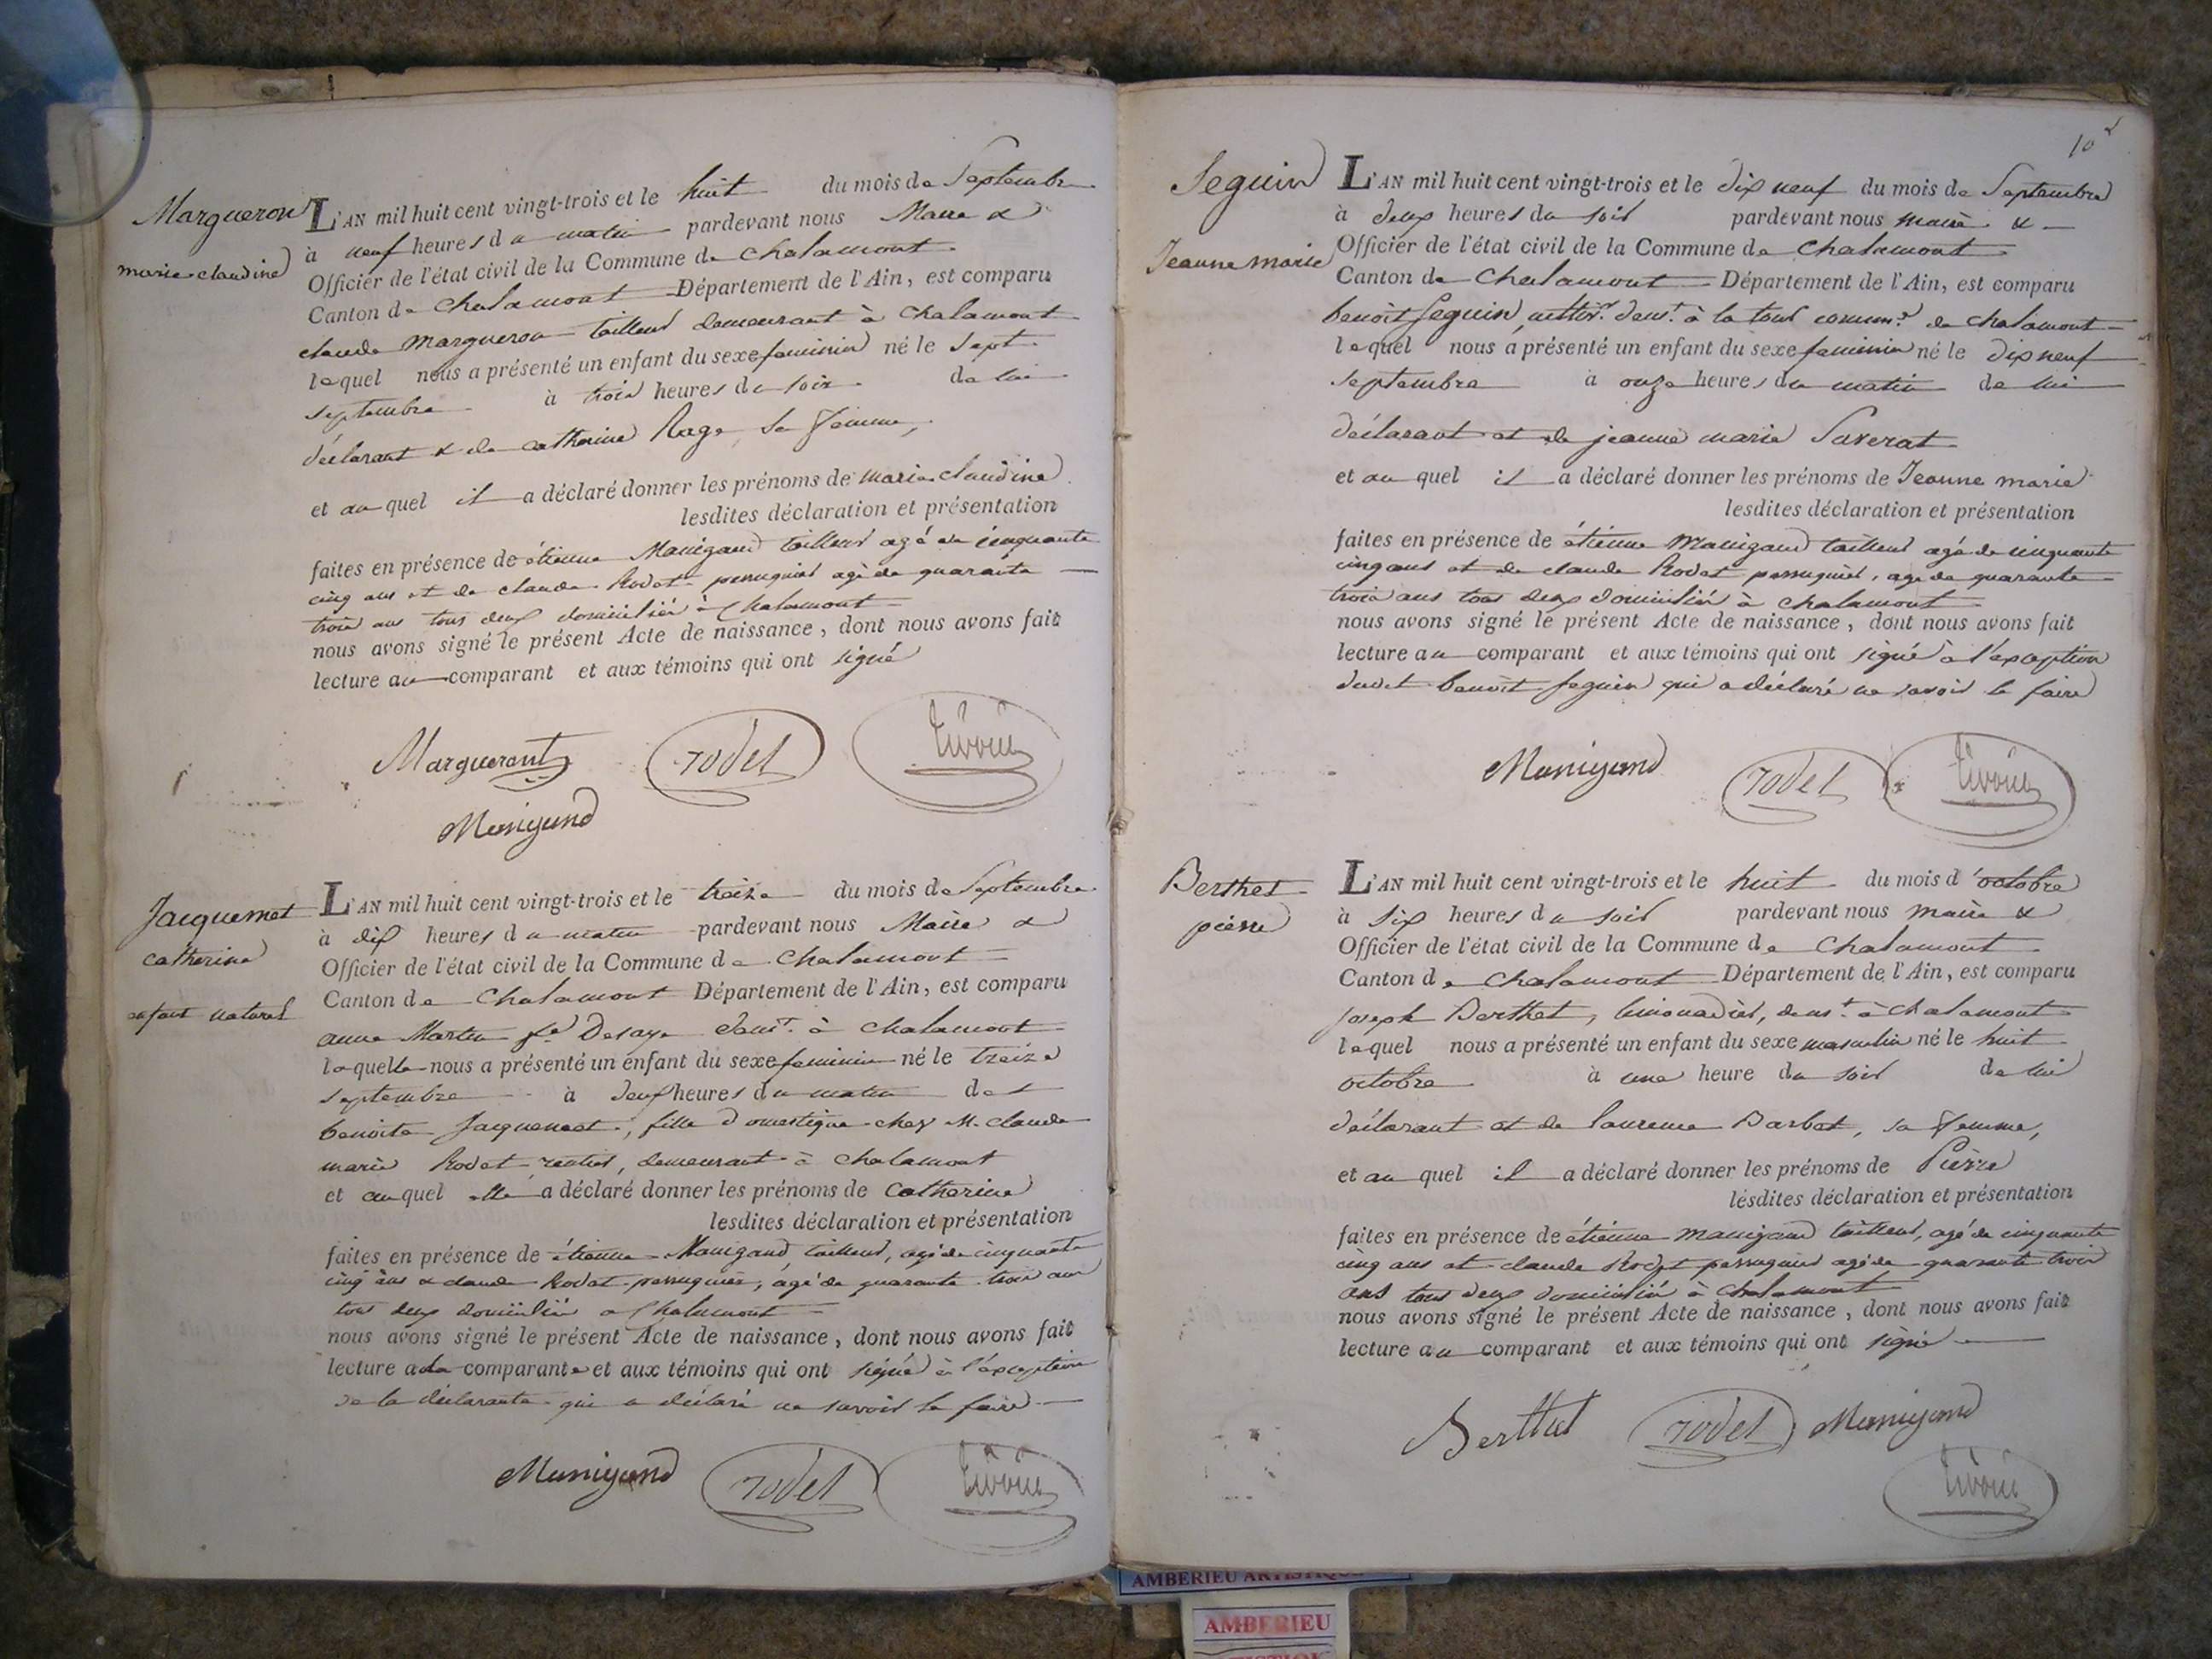 Margueron
marie claudine
L'AN mil huit cent vingt-trois et le huit du mois de Septembre
à neuf heures du matin pardevant nous Maire &
Officier de l'état civil de la Commune de Chalamont
Canton de Chalamont Département de l'Ain, est comparu
claude Margueron tailleur demeurant à Chalamont
lequel nous a présenté un enfant du sexe feminin né le Sept
septembre à trois heures du soir de lui
déclarant & de catherine Rage sa femme,
et au quel il a déclaré donner les prénoms de marie claudine
lesdites déclaration et présentation
faites en présence de étienne Manigand tailleur agé de cinquante
cinq ans et de claude Rodet perruquier agé de quarante
trois ans tous deux domiciliés à Chalamont
nous avons signé le présent Acte de naissance, dont nous avons fait
lecture au comparant et aux témoins qui ont signé
Margueront rodet
Manigand
Jacquemet
catherine
enfant naturel
L'AN mil huit cent vingt-trois et le treize du mois de Septembre
à dix heures du matin pardevant nous Maire &
Officier de l'état civil de la Commune de Chalamont
Canton de Chalamont Département de l'Ain, est comparu
anne Martin fe Desaye demt. à Chalamont
laquelle nous a présenté un enfant du sexe feminin né le treize
septembre à deux heures du matin de
benoite Jacquemet, fille domestique chez M. claude
marie Rodet rentier, demeurant à Chalamont
et au quel elle a déclaré donner les prénoms de Catherine
lesdites déclaration et présentation
faites en présence de étienne Manigand, tailleur, agé de cinquante
cinq ans & claude Rodet perruquier, agé de quarante trois ans
tous deux domiciliés à Chalamont
nous avons signé le présent Acte de naissance, dont nous avons fait
lecture a la comparante et aux témoins qui ont signé à l'éxception
de la déclarante qui a déclaré ne savoir le faire
Manigand rodet
10
Seguin
Jeanne marie
L'AN mil huit cent vingt-trois et le dix neuf du mois de Septembre
à deux heures du soir pardevant nous maire &
Officier de l'état civil de la Commune de Chalamont
Canton de Chalamont Département de l'Ain, est comparu
benoit Seguin, demt. à la tour comm.e de chalamont
lequel nous a présenté un enfant du sexe feminin né le dix neuf
septembre à onze heures du matin de lui
déclarant et de jeanne marie Saverat
et au quel il a déclaré donner les prénoms de Jeanne marie
lesdites déclaration et présentation
faites en présence de étienne Manigand tailleur agé de cinquante
cinq ans et de claude Rodet perruquier, agé de quarante
trois ans tous deux domiciliés à Chalamont
nous avons signé le présent Acte de naissance, dont nous avons fait
lecture au comparant et aux témoins qui ont signé à l'éxception
dudit benoit Seguin qui a déclaré ne savoir le faire
Manigand rodet
Berthet
pierre
L'AN mil huit cent vingt-trois et le huit du mois d'octobre
à six heures du soir pardevant nous maire &
Officier de l'état civil de la Commune de Chalamont
Canton de Chalamont Département de l'Ain, est comparu
joseph Berthet, limonadier, demt. à Chalamont
lequel nous a présenté un enfant du sexe masculin né le huit
octobre à une heure du soir de lui
déclarant et de laurence Barbet, sa femme,
et au quel il a déclaré donner les prénoms de Pierre
lesdites déclaration et présentation
faites en présence de étienne Manigand tailleur, agé de cinquante
cinq ans et claude Rodet perruquier agé de quarante trois
ans tous deux domiciliés à Chalamont
nous avons signé le présent Acte de naissance, dont nous avons fait
lecture au comparant et aux témoins qui ont signé
Berthet rodet Manigand
AMBERIEU ARTISTIQUE
AMBERIEU